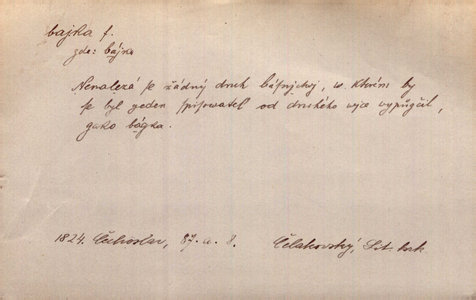 bajka f.
zde: bájka
Nenalezá se žádný druh básnický, w kterém by
se byl geden spisowatel od druhého wjce wypůgčil,
gako bágka.
1824. Čechoslav, 87. a 8. Čelakovský, Lit. krk.